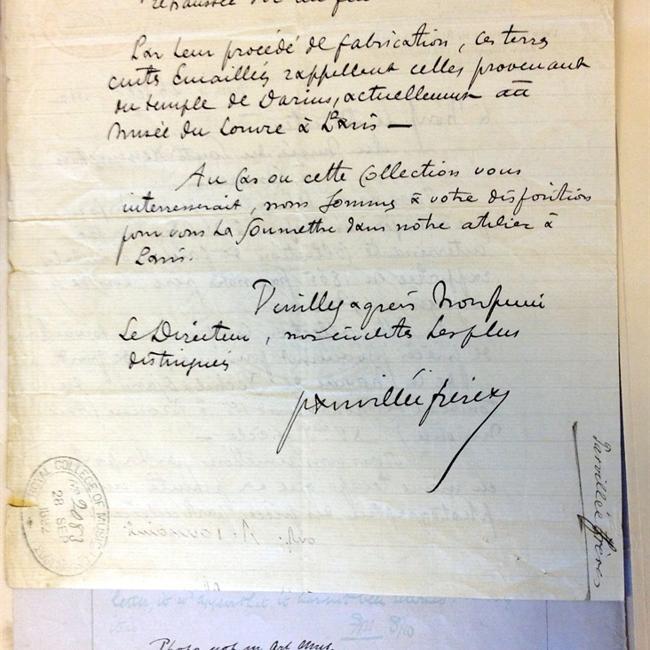 Par leur procédé de fabrication, ces terres
cuites émaillés rappellent celles provenant
du temple de Darius, actuellement au
Musée du Louvre à Paris —
Au cas ou cette Collection vous
interresserait, nous sommes à votre disposition
pour vous la soumettre dans notre atelier à
Paris.
Veuillez agréer Monsieur
Le Directeur, nos civilités les plus
distinguées
Parvillée frères
Parvillée frères
ROYAL COLLEGE OF MUSIC
2083
28 SEP
Photo not in Art